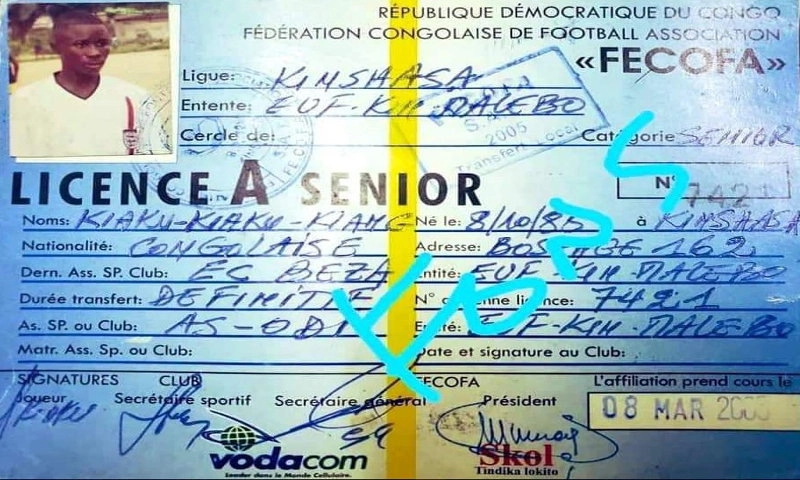 RÉPUBLIQUE DÉMOCRATIQUE DU CONGO
FÉDÉRATION CONGOLAISE DE FOOTBALL ASSOCIATION
«FECOFA»
Ligue: KINSHASA
Entente: EUF-KIN-MALEBO
Cercle de:
Catégorie SENIOR
2005
Transfert Local
LICENCE A SENIOR
N° 7421
Noms: KIAKU-KIAKU-KIANG Né le: 8/10/85 à KINSHASA
Nationalité: CONGOLAISE Adresse: 162
Dern. Ass. SP. Club: ÉC BEZA Entité: EUF-KIN-MALEBO
Durée transfert: DÉFINITIF N° licence: 7421
As. SP. ou Club: AS-ODI Entité: EUF-KIN-MALEBO
Matr. Ass. Sp. ou Club: Date et signature au Club:
SIGNATURES CLUB FECOFA L'affiliation prend cours le
Joueur Secrétaire sportif Secrétaire général Président
08 MAR
vodacom
Leader dans le Monde Cellulaire.
Skol
Tindika lokito